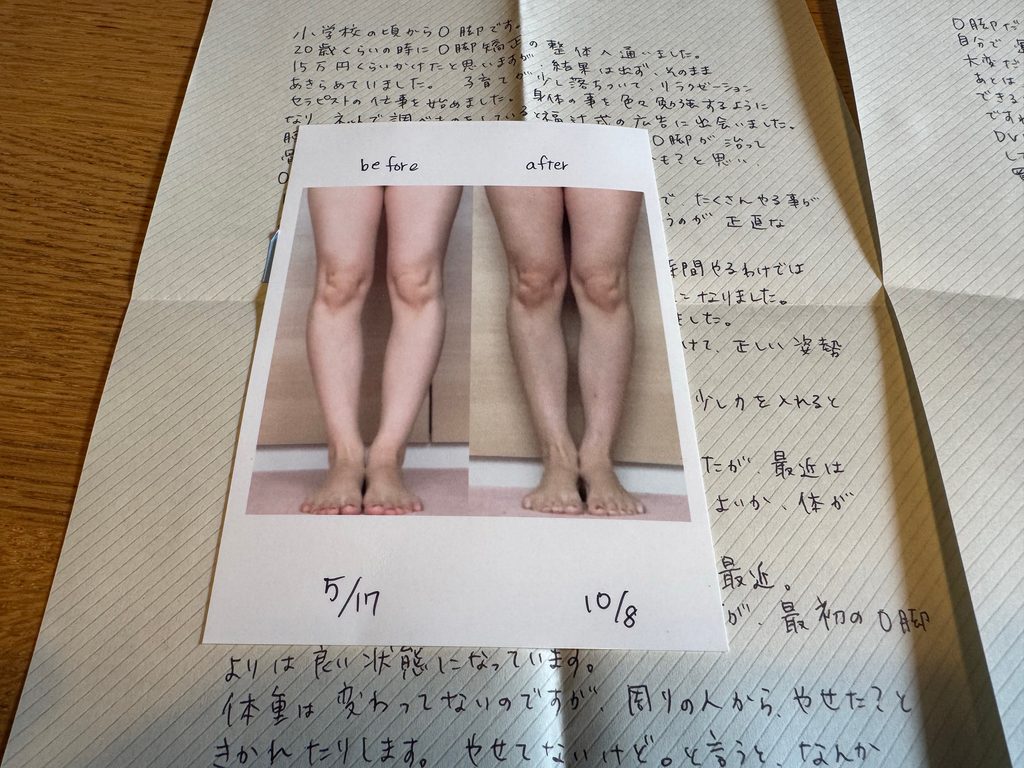 小学校の頃からO脚です。
20歳くらいの時にO脚矯正の整体へ通いました。
15万円くらいかけたと思いますが、結果は出ず、そのまま
あきらめていました。 子育てが少し落ちついて、リラクゼーション
セラピストの仕事を始めました。身体の事を色々勉強するように
なり、ネットで調べものをしていると福辻式の広告に出会いました。
O脚が治って
も?と思い、
で たくさんやる事が
うのが 正直な
時間やるわけでは
になりました。
ました。
けて、正しい姿勢
少し力を入れると
たが、最近は
よいか、体が
最近。
が、最初のO脚
よりは良い状態になっています。
体重は変わってないのですが、周りの人から、やせた?と
きかれたりします。 やせてないけど。と言うと、なんか
before
after
5/17
10/8
O脚だ
自分で
大変だ
あとは
できる
ですね
DV
し
買